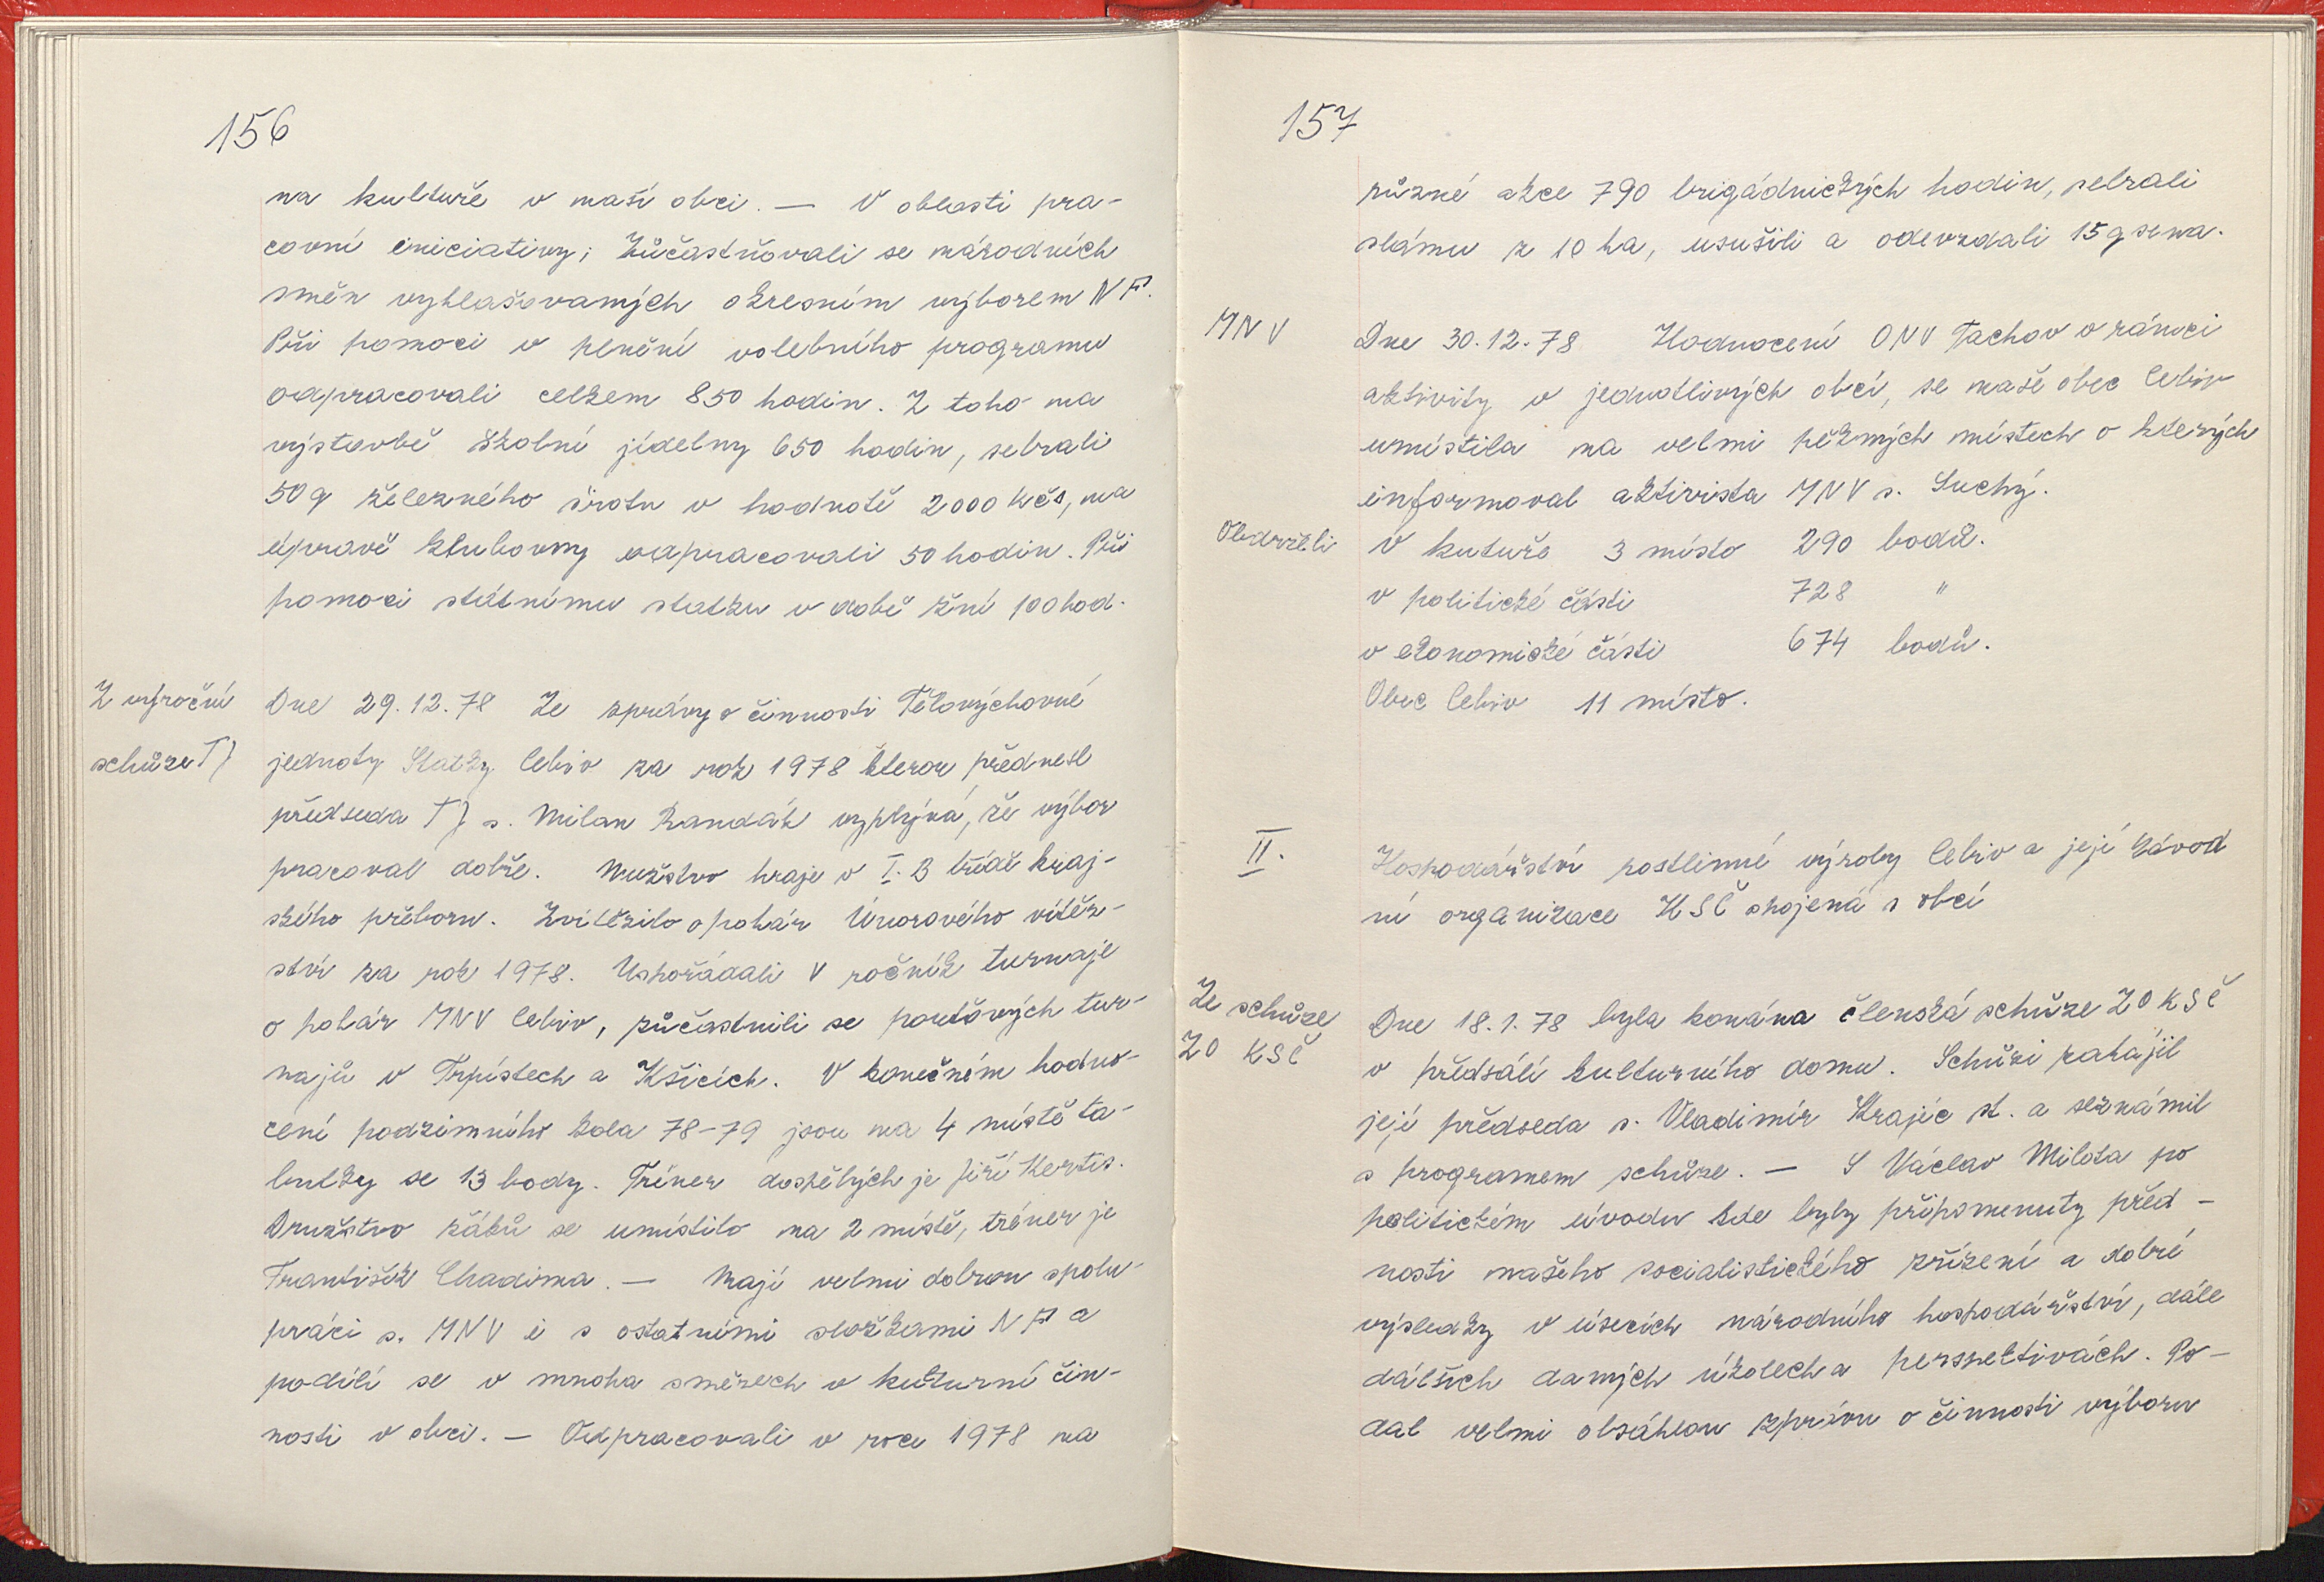 156
na kultuře v naší obci. — V oblasti pra-
covní iniciativy; Zůčastňovali se národních
směn vyhlašovaných okresním výborem NF.
Při pomoci v plnění volebního programu
odpracovali celkem 850 hodin. Z toho na
výstavbě školní jídelny 650 hodin, sebrali
50 q železného šrotu v hodnotě 2000 Kčs, na
úpravě klubovny odpracovali 50 hodin. Při
pomoci státnímu statku v době žní 100 hod.
Z výroční
schůze TJ
Dne 29.12.78 Ze zprávy o činnosti Tělovýchovné
jednoty Statky Cebiv za rok 1978 kterou přednesl
předseda TJ s. Milan Randák vyplývá, že výbor
pracoval dobře. Mužstvo hraje v I. B třídě kraj-
ského přeboru. Zvítězilo o pohár Únorového vítěz-
ství za rok 1978. Uspořádali V ročník turnaje
o pohár MNV Cebiv, zůčastnili se pouťových tur-
najů v Trpístech a Kšicích. V konečném hodno-
cení podzimního kola 78-79 jsou na 4 místě ta-
bulky se 13 body. Tréner dospělých je Jiří Kertis.
Družstvo žáků se umístilo na 2 místě, tréner je
František Chadima. — Mají velmi dobrou spolu-
práci s. MNV i s ostatními složkami NF a
podílí se v mnoha směrech v kulturní čin-
nosti v obci. — Odpracovali v roce 1978 na
157
různé akce 790 brigádnických hodin, sebrali
slámu z 10 ha, usušili a odevzdali 15 q sena.
MNV
Dne 30.12.78 Hodnocení ONV Tachov v rámci
aktivity v jednotlivých obcí, se naše obec Cebiv
umístila na velmi pěkných místech o kterých
informoval aktivista MNV s. Suchý.
Obdrželi
V kutuře 3 místo 290 bodů.
v politické části 728 "
v ekonomické části 674 bodů.
Obec Cebiv 11 místo.
II.
Hospodářství rostlinné výroby Cebiv a její závod
ní organizace KSČ spojená s obcí
Ze schůze
ZO KSČ
Dne 18.1.78 byla konána členská schůze ZO KSČ
v předsálí kulturního domu. Schůzi zahájil
její předseda s. Vladimír Krajíc st. a seznámil
s programem schůze. — S Václav Milota po
politickém úvodu kde byly připomenuty před-
nosti našeho socialistického zřízení a dobré
výsledky v úsecích národního hospodářství, dále
dálších daných úkolech a perspektivách. Po-
dal velmi obsáhlou zprávu o činnosti výboru